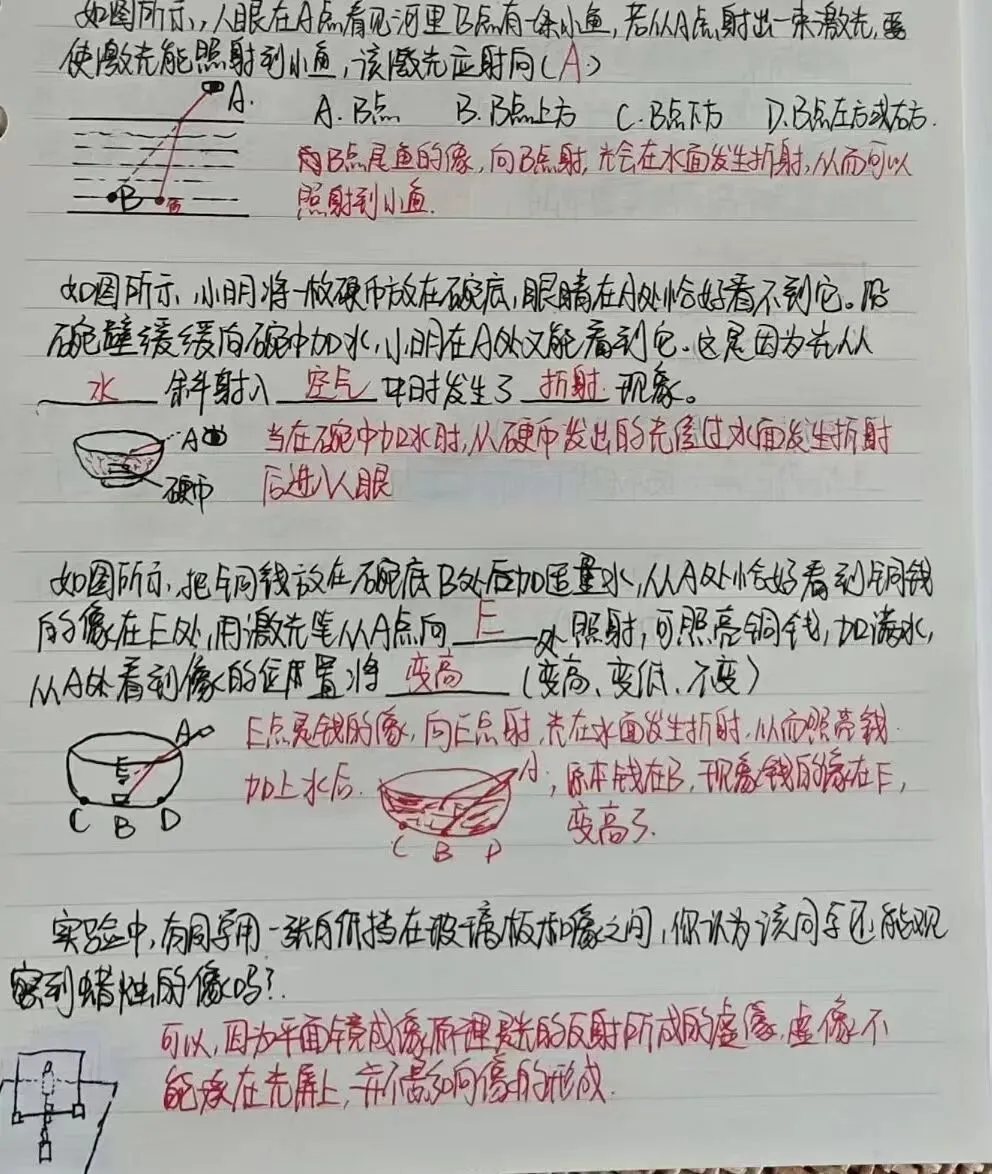 如图所示,人眼在A点看见河里B点有一条小鱼,若从A点射出一束激光,要
使激光能照射到小鱼,该激光应射向(A)
A. A.B点 B.B点上方 C.B点下方 D.B点左方或右方.
B点是鱼的像,向B点射,光会在水面发生折射,从而可以
B 鱼 照射到小鱼.
如图所示,小明将一枚硬币放在碗底,眼睛在A处恰好看不到它。沿
碗壁缓缓向碗中加水,小明在A处又能看到它。这是因为光从
水 斜射入 空气 中时发生了 折射 现象。
A 当在碗中加水时,从硬币发出的光透过水面发生折射
硬币 后进入人眼
如图所示,把铜钱放在碗底B处后加适量水,从A处恰好看到铜钱
的像在E处,用激光笔从A点向 E 处照射,可照亮铜钱,加满水,
从A处看到像的位置将 变高 (变高、变低、不变)
A E点是钱的像,向E点射,光在水面发生折射,从而照亮钱.
E 加上水后. A, 原本钱在B,现象钱的像在E,
C B D C B D 变高了.
实验中,有同学用一张白纸挡在玻璃板和像之间,你认为该同学还能观
察到蜡烛的像吗?.
可以,因为平面镜成像原理是光的反射所成的虚像,虚像不
能承在光屏上,并不影响像的形成.